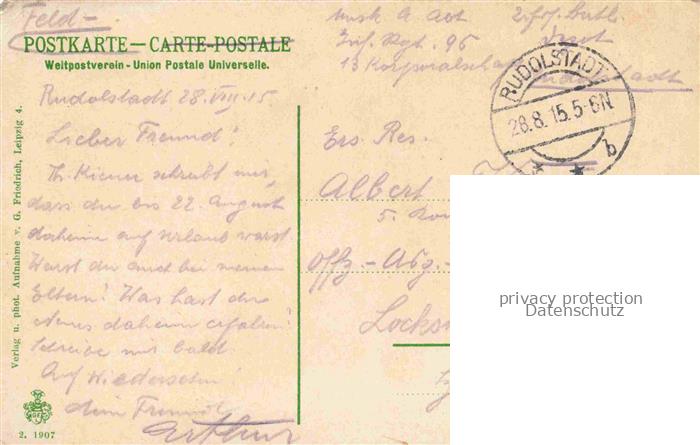 Feld-
POSTKARTE — CARTE-POSTALE
Weltpostverein - Union Postale Universelle.
Musk A
Inf. Rgt. 96
13 Korporalschaft
Rudolstadt
RUDOLSTADT
28.8.15.5-6N
* * b
Rudolstadt 28.VIII.15
Lieber Freund!
Th. Kiener schreibt mir,
dass du bis 22. August
daheim auf Urlaub warst.
Warst du auch bei meinen
Eltern? Was hast du
Neues daheim erfahren?
Schreibe mir bald.
Auf Wiedersehn!
dein Freund
Arthur
Ers. Res.
Albert
5. Kor
Offz.-Asp.-
Locks
Verlag u. phot. Aufnahme v. G. Friedrich, Leipzig 4.
2. 1907
privacy protection
Datenschutz